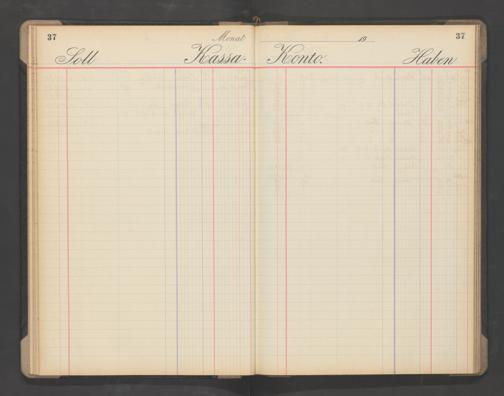 37 Monat 19 37
Soll Kassa- Konto. Haben